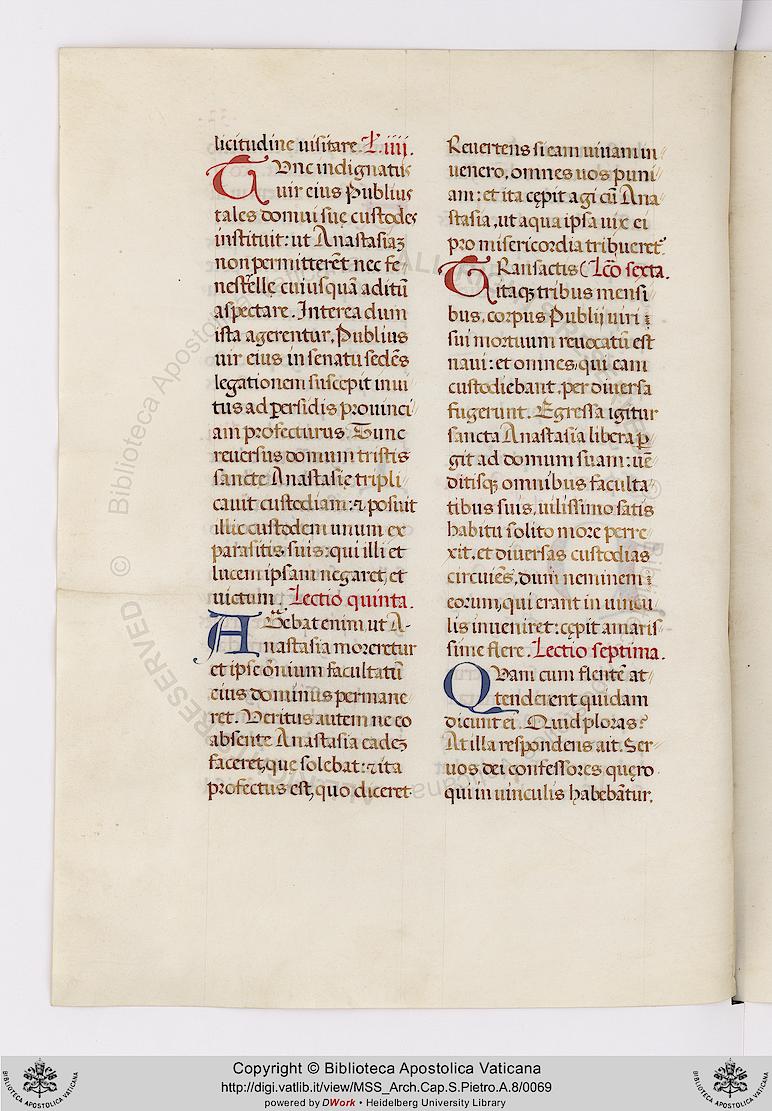 licitudine uisitare. L. iiii.
TVnc indignatus
uir eius Publius
tales domui suę custodes
instituit: ut Anastasiaꝫ
non permitterēt nec fe-
nestrelle cuiusquā aditū
aspectare. Interea dum
ista agerentur, Publius
uir eius in senatu sedēs
legationem suscepit inui
tus ad ꝑsidis prouinci
am profecturus. Tunc
reuersus domum tristis
sanctę Anastasię tripli
cauit custodiam: ⁊ posuit
illic custodem unum ex
parasitis suis: qui illi et
lucem ipsam negaret, et
uictum. Lectio quinta.
AGebat enim ut A-
nastasia moreretur
et ipse oīnium facultatū
eius dominus permane
ret. Veritus autem ne eo
absente Anastasia eadeꝫ
faceret, que solebat: ⁊ ita
profectus est, quo diceret.
Reuertens si eam uiuam in
uenero, omnes uos puni
am: et ita cępit agi cū Ana
stasia, ut aqua ipsa uix ei
pro misericordia tribueret.
TRansactis (Lcō sexta.
itaqꝫ tribus mensi
bus, corpus Publij uiri
sui mortuum reuocatū est
naui: et omnes, qui eam
custodiebant, per diuersa
fugerunt. Egressa igitur
sancta Anastasia libera ꝑ
git ad domum suam: uē
ditisqꝫ omnibus faculta
tibus suis, uilissimo satis
habitu solito more perre
xit, et diuersas custodias
circuiēs, dum neminem
eorum, qui erant in uincu
lis inueniret: cępit amaris
sime flere. Lectio septima.
QVam cum flentē at
tenderent quidam
dicunt ei. Quid ploras?
At illa respondens ait. Ser
uos dei confessores quęro
qui in uinculis habebātur.
© Biblioteca Apostolica Vaticana
RESERVED
Copyright © Biblioteca Apostolica Vaticana
http://digi.vatlib.it/view/MSS_Arch.Cap.S.Pietro.A.8/0069
powered by DWork • Heidelberg University Library
BIBLIOTECA APOSTOLICA VATICANA
BIBLIOTECA APOSTOLICA VATICANA